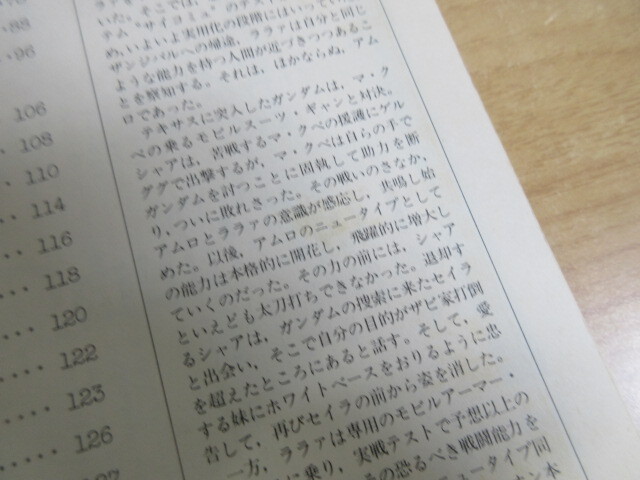 いた。そこでは、
テム"サイコミュ"のテス
め、いよいよ実用化の段階にはいっていた
ザンジバルへの帰途、ララァは自分と同じ
ような能力を持つ人間が近づきつつあるこ
とを察知する。それは、ほかならぬ、アム
ロであった。
テキサスに突入したガンダムは、マ・ク
ベの乗るモビルスーツ・ギャンと対決。
シャアは、苦戦するマ・クベの援護にゲル
ググで出撃するが、マ・クベは自らの手で
ガンダムを討つことに固執して助力を断
り、ついに敗れさった。その戦いのさなか、
アムロとララァの意識が感応し、共鳴し始
めた。以後、アムロのニュータイプとして
の能力は本格的に開花し、飛躍的に増大し
ていくのだった。その力の前には、シャア
といえども太刀打ちできなかった。退却す
るシャアは、ガンダムの捜索に来たセイラ
と出会い、そこで自分の目的がザビ家打倒
を超えたところにあると話す。そして、愛
する妹にホワイトベースをおりるように忠
告して、再びセイラの前から姿を消した。
一方、ララァは専用のモビルアーマー・
に乗り、実戦テストで予想以上の
その恐るべき戦闘能力を
ニュータイプ同
96
106
108
110
114
116
118
120
122
123
126